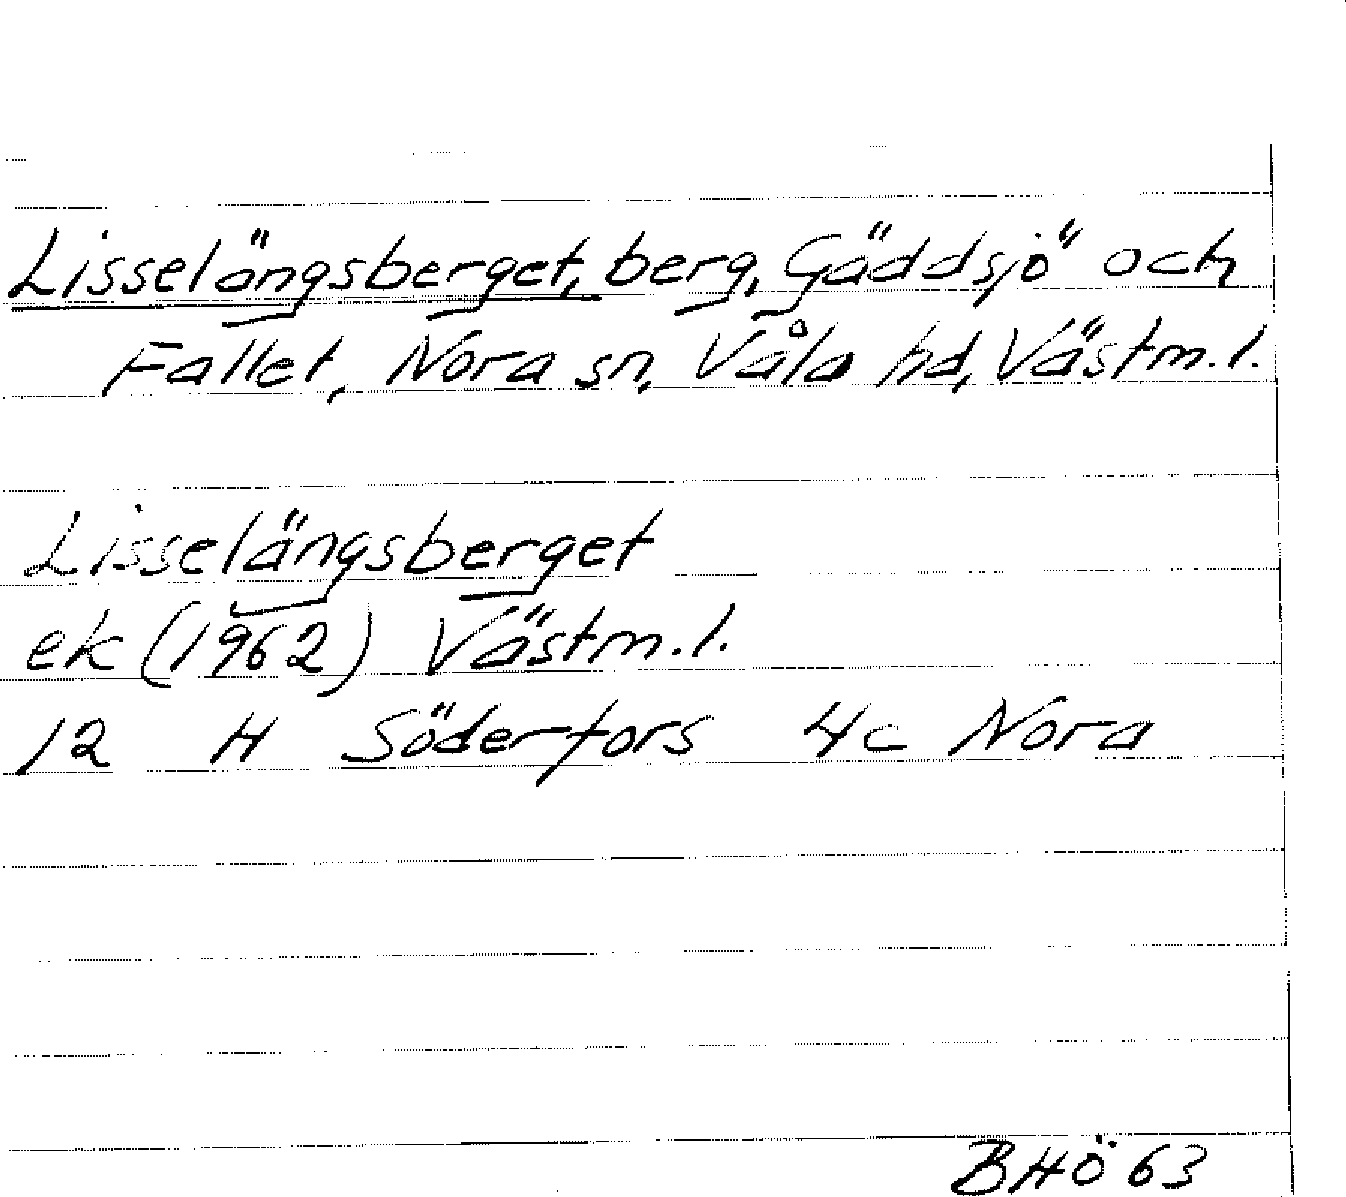 Lisselängsberget, berg, Gäddsjö och
Fallet, Nora sn, Våla hd, Västm.l.
Lisselängsberget
ek (1962) Västm.l.
12 H Söderfors 4c Nora
BHÖ 63